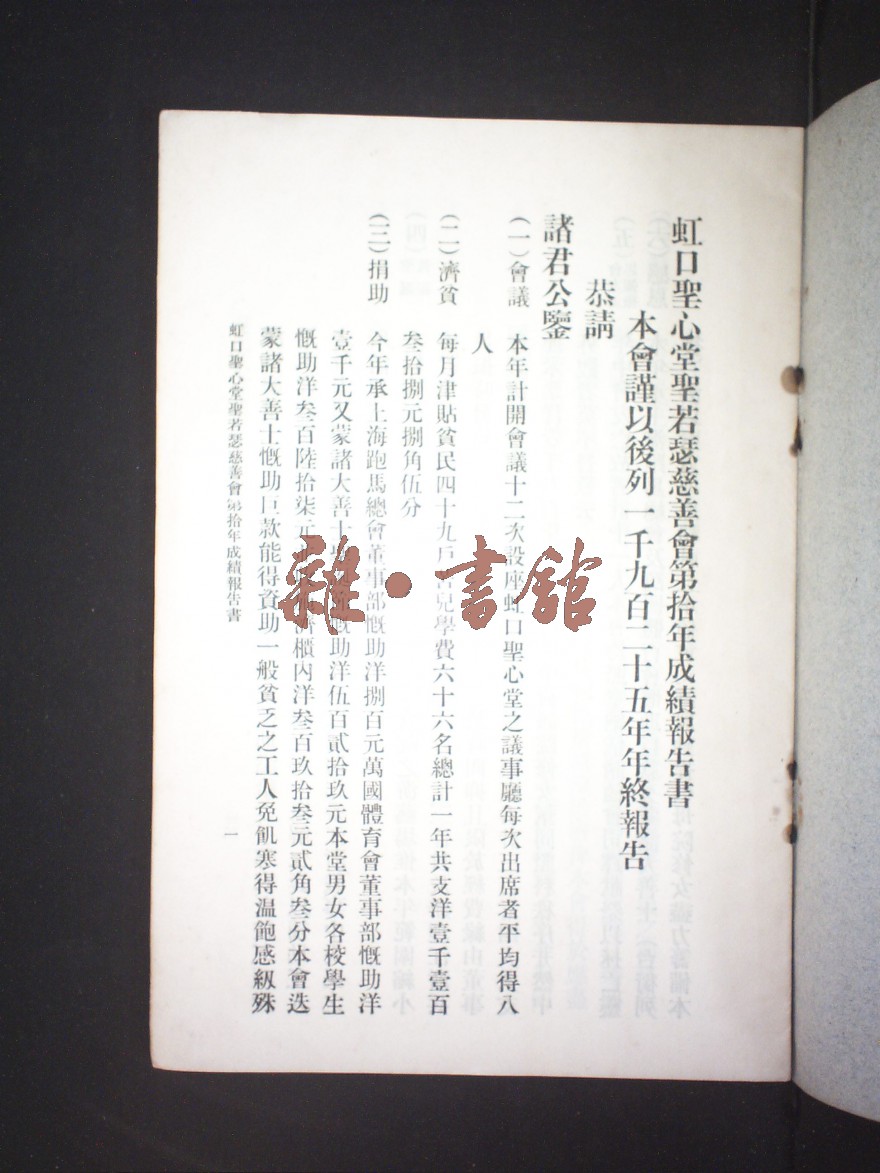 虹口聖心堂聖若瑟慈善會第拾年成績報告書
本會謹以後列一千九百二十五年年終報告
恭請
諸君公鑒
(一)會議 本年計開會議十二次設座虹口聖心堂之議事廳每次出席者平均得八
人
(二)濟貧 每月津貼貧民四十九戶兒學費六十六名總計一年共支洋壹千壹百
叁拾捌元捌角伍分
(三)捐助 今年承上海跑馬總會董事部慨助洋捌百元萬國體育會董事部慨助洋
壹千元又蒙諸大善士慨助洋伍百貳拾玖元本堂男女各校學生
慨助洋叁百陸拾柒元濟櫃內洋叁百玖拾叁元貳角叁分本會迭
蒙諸大善士慨助巨款能得資助一般貧乏之工人免飢寒得溫飽感級殊
虹口聖心堂聖若瑟慈善會第拾年成績報告書
一
雜·書館